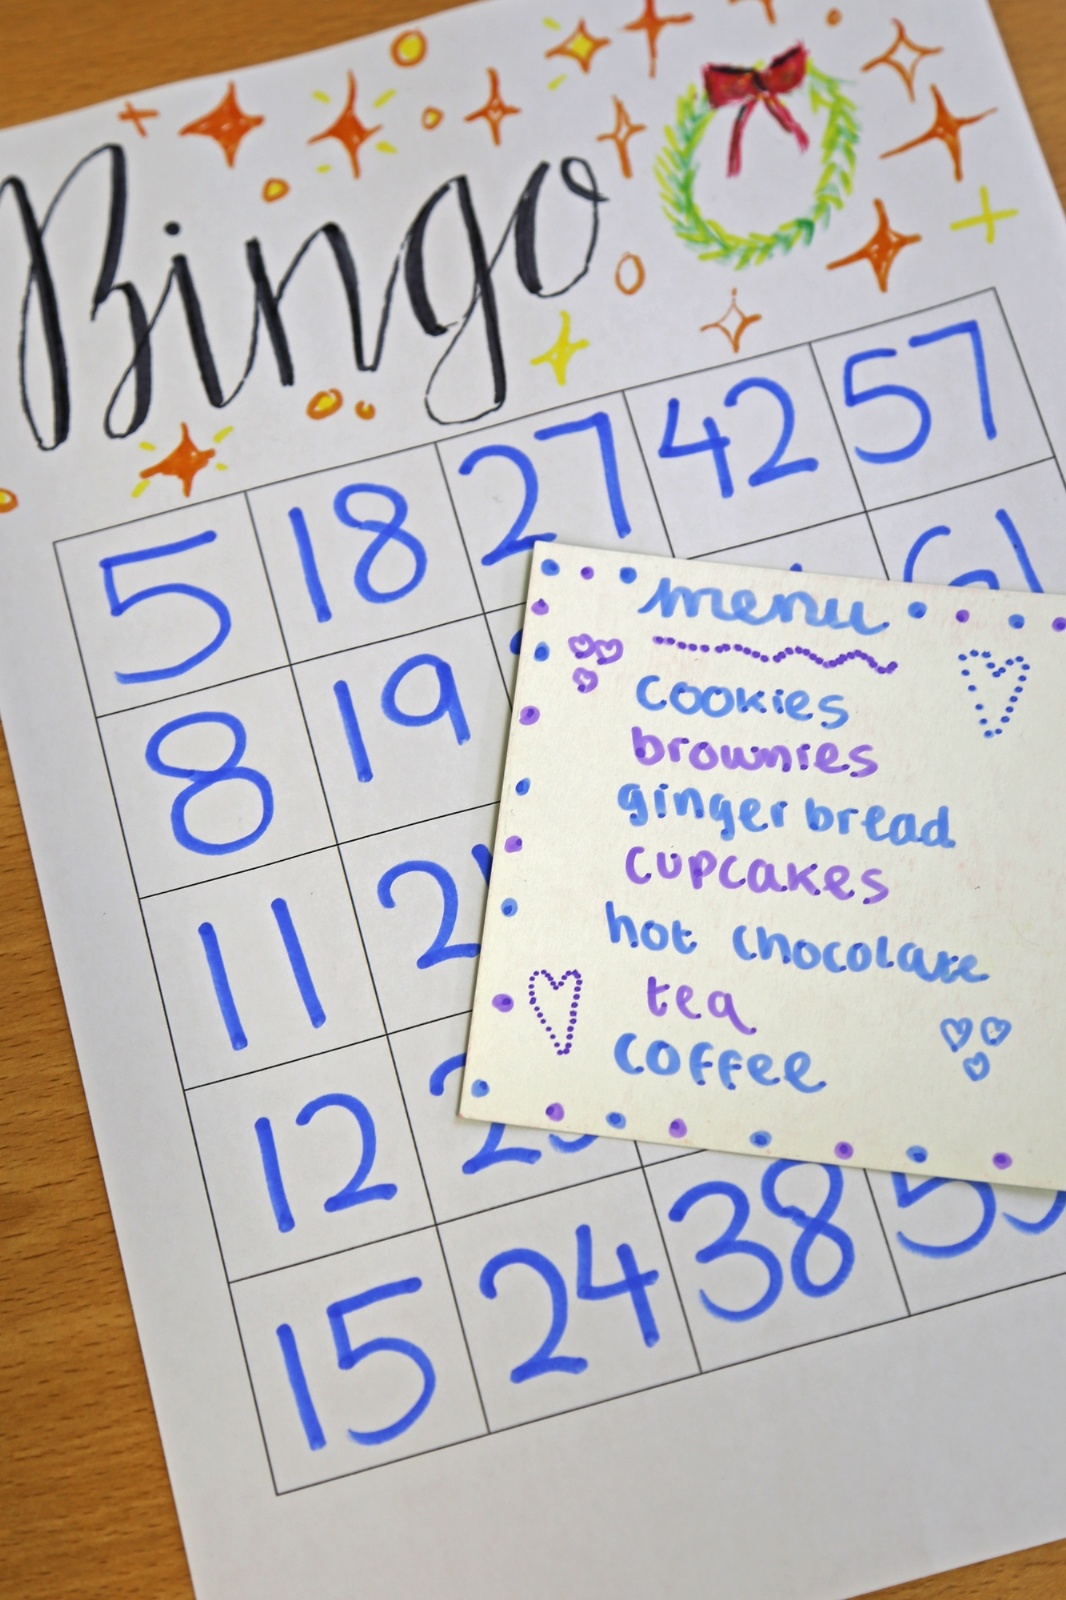 Bingo
5 18 27 42 57
8 19
11
12
15 24 38
menu
cookies
brownies
ginger bread
cupcakes
hot chocolate
tea
coffee